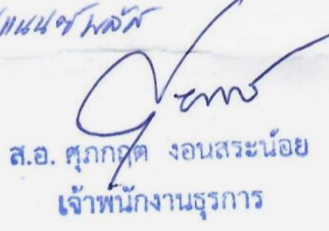 ส.อ. ศุภกฤต งอนสระน้อย
เจ้าพนักงานธุรการ